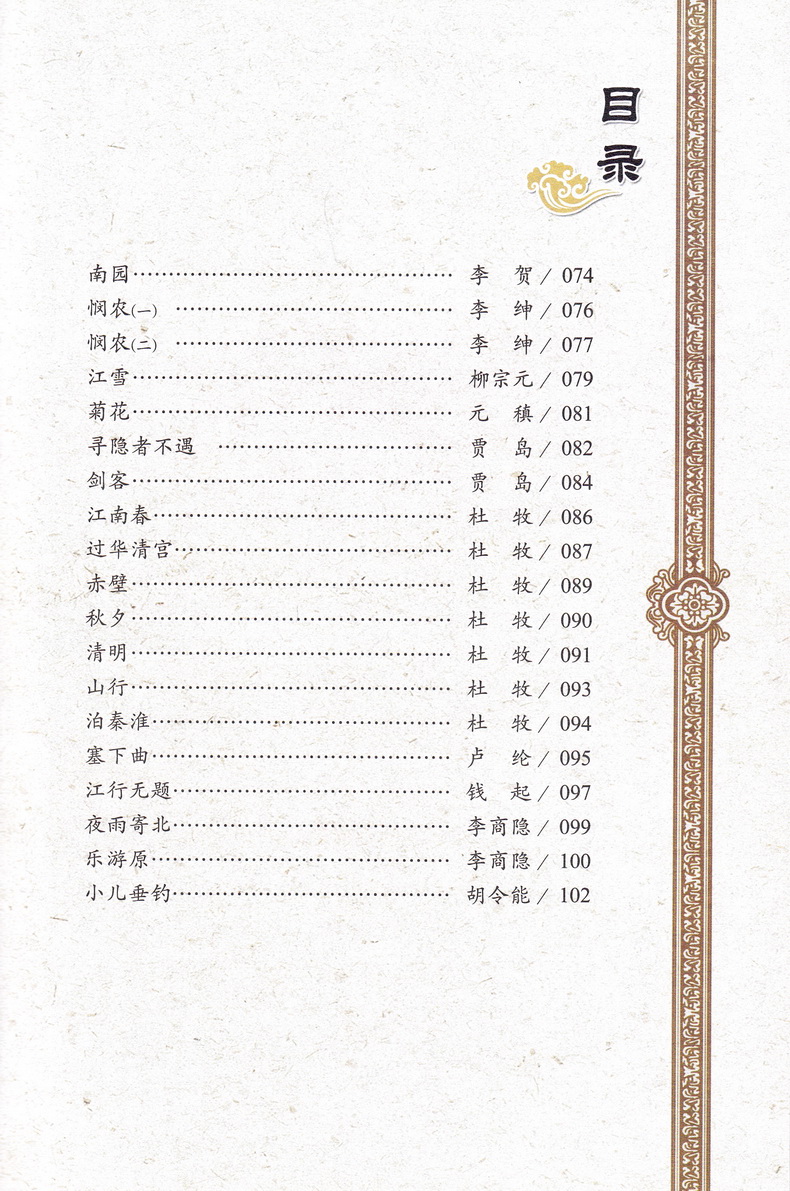 目录
南园……………………………………… 李 贺 / 074
悯农(一) ………………………………… 李 绅 / 076
悯农(二) ………………………………… 李 绅 / 077
江雪……………………………………… 柳宗元 / 079
菊花……………………………………… 元 稹 / 081
寻隐者不遇 …………………………… 贾 岛 / 082
剑客……………………………………… 贾 岛 / 084
江南春…………………………………… 杜 牧 / 086
过华清宫………………………………… 杜 牧 / 087
赤壁……………………………………… 杜 牧 / 089
秋夕……………………………………… 杜 牧 / 090
清明……………………………………… 杜 牧 / 091
山行……………………………………… 杜 牧 / 093
泊秦淮…………………………………… 杜 牧 / 094
塞下曲…………………………………… 卢 纶 / 095
江行无题………………………………… 钱 起 / 097
夜雨寄北………………………………… 李商隐 / 099
乐游原…………………………………… 李商隐 / 100
小儿垂钓………………………………… 胡令能 / 102